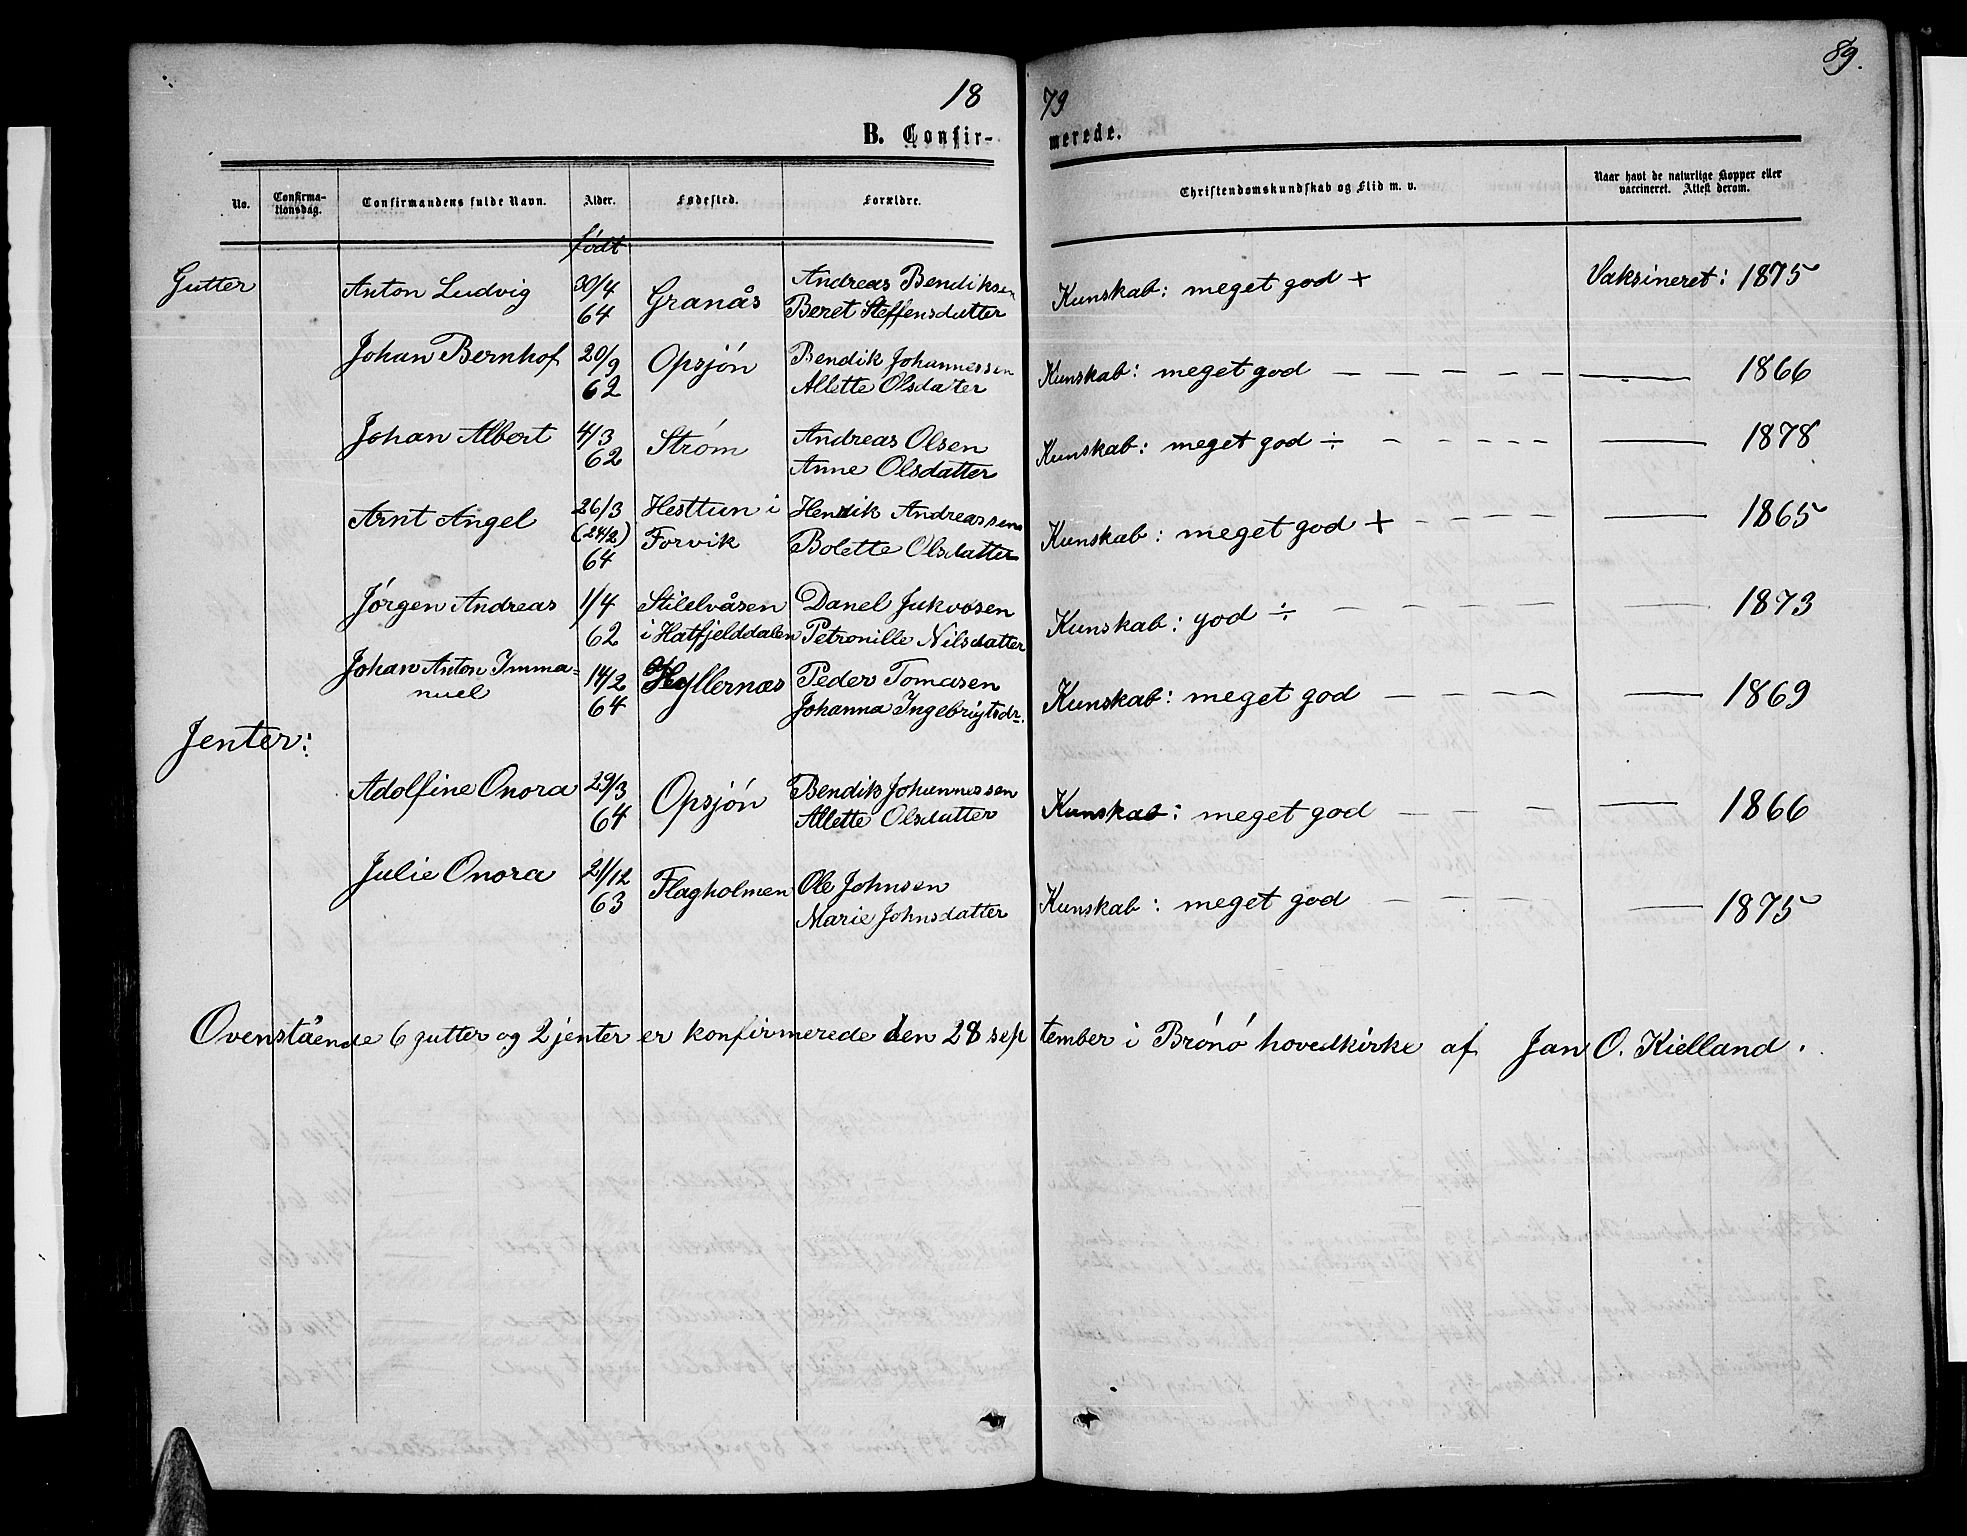 89.
18 79
B. Confir- merede.
No. Confirma-tionsdag. Confirmandens fulde Navn. Alder. Fødested. Forældre. Christendomskundskab og Flid m. v. Naar havt de naturlige Kopper eller vaccineret. Attest derom.
født
Gutter Anton Ludvig 30/4 64 Granås Andreas Bendiksen Beret Steffensdatter Kunskab: meget god + Vaksineret: 1875
Johan Bernhof 20/9 62 Opsjøn Bendik Johannessen Allette Olsdater Kunskab: meget god — — — — — 1866
Johan Albert 4/3 62 Strøm Andreas Olsen Anne Olsdatter Kunskab: meget god ÷ — — — — — 1878
Arnt Angel 26/3 (24/2) 64 Hesttun i Forvik Hendik Andreassen Bolette Olsdatter Kunskab: meget god + — — — — — 1865
Jørgen Andreas 1/4 62 Stilelvåsen i Hatfjelddalen Danel Jukvosen Petronille Nilsdatter Kunskab: god ÷ — — — — — 1873
Johan Anton Imma=nuel 14/2 64 Hyllernæs Peder Tomasen Johanna Ingebrigtsdr. Kunskab: meget god — — — — — 1869
Jenter:
Adolfine Onora 29/3 64 Opsjøn Bendik Johannessen Allette Olsdatter Kunskab: meget god — — — — 1866
Julie Onora 21/12 63 Flagholmen Ole Johnsen Marie Johnsdatter Kunskab: meget god — — — — — 1875
Ovenstående 6 gutter og 2 jenter er konfirmerede den 28 september i Brønø hovedkirke af Jan O. Kielland.